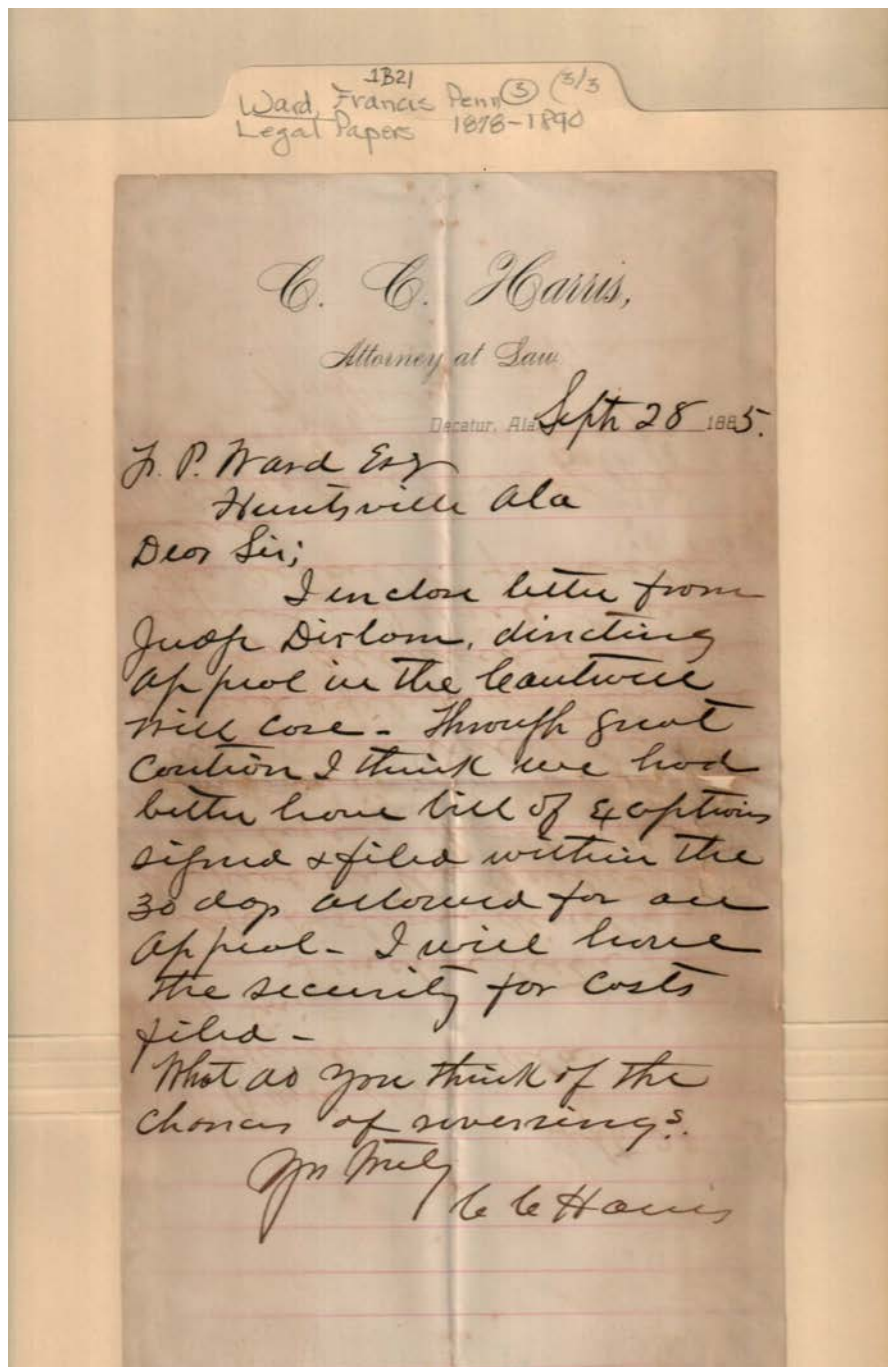 1B21
Ward, Francis Penn 3 (3/3
Legal Papers 1878-1890
C. C. Harris,
Attorney at Law.
Decatur, Ala Sept 28 1885.
F. P. Ward Esq
Huntsville Ala
Dear Sir;
I enclose letter from
Judge directing
appeal in the
Will Case - Through great
Caution I think we had
better have bill of Exceptions
signed & filed within the
30 days allowed for an
Appeal - I will have
the security for Costs
filed -
What do you think of the
Chances of reversing?
Yrs Truly
C C Harris